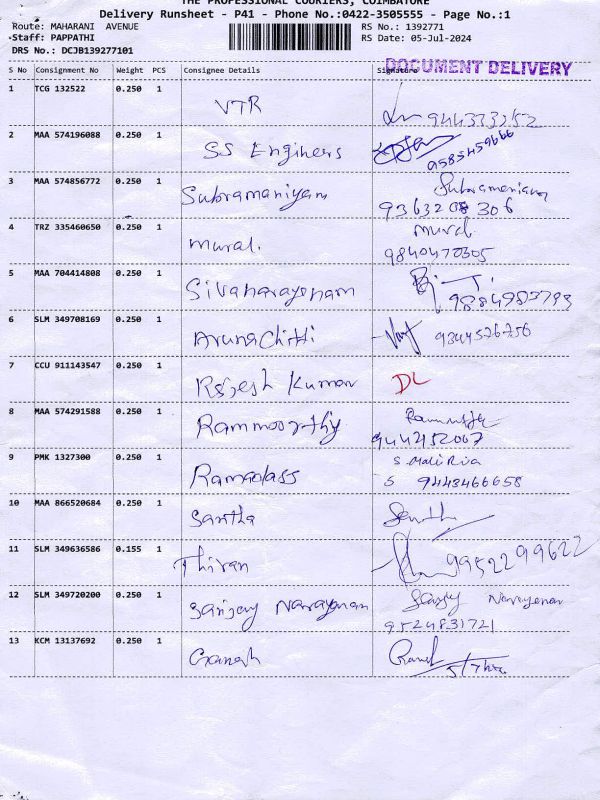 THE PROFESSIONAL COURIERS, COIMBATORE
Delivery Runsheet - P41 - Phone No.:0422-3505555 - Page No.:1
Route: MAHARANI AVENUE
RS No.: 1392771
Staff: PAPPATHI
RS Date: 05-Jul-2024
DRS No.: DCJB139277101
DOCUMENT DELIVERY
S No Consignment No Weight PCS Consignee Details Signature
1 TCG 132522 0.250 1 VTR
2 MAA 574196088 0.250 1 SS Engineers
9585459666
3 MAA 574856772 0.250 1 Subramaniyam Subramaniyam
9363208306
4 TRZ 335460650 0.250 1 Murali Murali
9840470305
5 MAA 704414808 0.250 1 Sivanarayanam
6 SLM 349708169 0.250 1 Aruna Chitti 9344576756
7 CCU 911143547 0.250 1 Rajesh Kumar DL
8 MAA 574291588 0.250 1 Rammoorthy
9442152067
9 PMK 1327300 0.250 1 Ramadass
9443466658
10 MAA 866520684 0.250 1 Santha
11 SLM 349636586 0.155 1 Thiran 9952299622
12 SLM 349720200 0.250 1 Sanjay Narayanan Sanjay Narayanan
9524831721
13 KCM 13137692 0.250 1 Ganesh